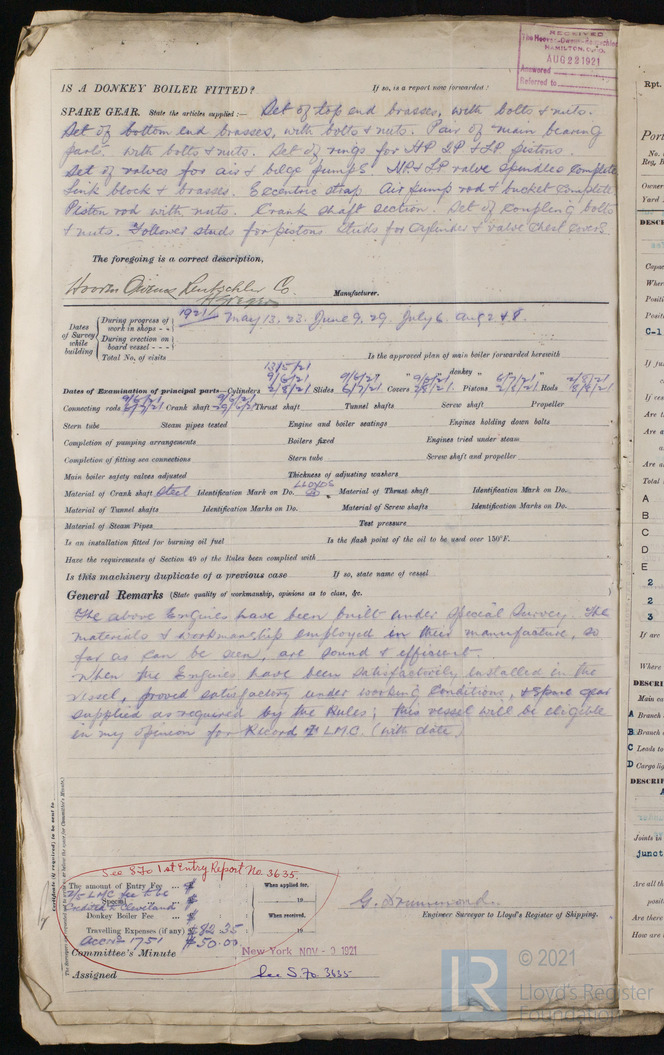 RECEIVED
The Hooven-Owens-Rentschler Co.
HAMILTON, O.
AUG 22 1921
Answered
Referred to
IS A DONKEY BOILER FITTED? If so, is a report now forwarded?
SPARE GEAR. State the articles supplied:— Set of top end brasses, with bolts & nuts.
Set of bottom end brasses, with bolts & nuts. Pair of main bearing
parts with bolts & nuts. Set of rings for HP IP & LP pistons.
Set of valves for air & bilge pumps. HP & LP valve spindles complete
Link block & brasses. Eccentric strap Air pump rod & bucket complete
Piston rod with nuts. Crank shaft section. Set of coupling bolts
& nuts. Follower studs for pistons Studs for cylinder & valve chest covers.
The foregoing is a correct description,
Hooven Owens Rentschler Co.
Manufacturer.
Dates of Survey while building
During progress of work in shops - - 1921 May 13. 23. June 9. 29 July 6. Aug 2 & 8.
During erection on board vessel - - -
Total No. of visits
Is the approved plan of main boiler forwarded herewith
" " " donkey " " "
Dates of Examination of principal parts—Cylinders 13/5/21 9/6/21 2/8/21 Slides 6/7/21 Covers 2/8/21 Pistons 6/7/21 2/8/21 Rods 2/8/21 8/8/21
Connecting rods Crank shaft Thrust shaft Tunnel shafts Screw shaft Propeller
Stern tube Steam pipes tested Engine and boiler seatings Engines holding down bolts
Completion of pumping arrangements Boilers fixed Engines tried under steam
Completion of fitting sea connections Stern tube Screw shaft and propeller
Main boiler safety valves adjusted Thickness of adjusting washers
Material of Crank shaft Steel Identification Mark on Do. LLOYDS Material of Thrust shaft Identification Mark on Do.
Material of Tunnel shafts Identification Marks on Do. Material of Screw shafts Identification Marks on Do.
Material of Steam Pipes Test pressure
Is an installation fitted for burning oil fuel Is the flash point of the oil to be used over 150°F.
Have the requirements of Section 49 of the Rules been complied with
Is this machinery duplicate of a previous case If so, state name of vessel
General Remarks (State quality of workmanship, opinions as to class, &c.
The above Engines have been built under special Survey. The
materials & workmanship employed in their manufacture, so
far as can be seen, are sound & efficient.
When the Engines have been satisfactorily installed in the
vessel, proved satisfactory under working conditions, & spare gear
supplied as required by the Rules; this vessel will be eligible
in my opinion for Record LMC. (with date)
Certificate (if required) to be sent to
See S Fo 1st Entry Report No. 3635.
The amount of Entry Fee ... $ When applied for,
2/5 LMC fee to be
Special
Credited Cleveland 19
Donkey Boiler Fee ... $ When received,
Travelling Expenses (if any) $ 82.35 19
Accno 1751 $50.00
G. Drummond.
Engineer Surveyor to Lloyd's Register of Shipping.
Committee's Minute New York NOV - 2 1921
Assigned See S. Fo 3635
Rpt.
Port
No.
Reg.
Owner
Yard
DESCR
C-1
A
B
C
D
E
2
2
2
3
If are
Where
DESCRI
Main co
A Branch
B Branch
C Leads to
D Cargo lig
DESCRIP
Joints in
junct
Are all th
posit
Are there
How are
© 2021
LR
Lloyd's Register
Foundation